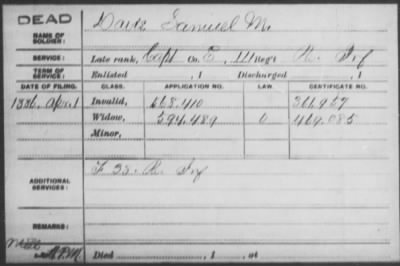 DEAD
NAME OF SOLDIER:
Samuel M.
SERVICE:
Late rank, Capt Co. E, 111 Reg't Inf
TERM OF SERVICE:
Enlisted , 1 Discharged , 1
DATE OF FILING. CLASS. APPLICATION NO. LAW. CERTIFICATE NO.
Invalid, 568.410
Widow, 594.489 469.085
Minor,
ADDITIONAL SERVICES:
F 33. Inf
REMARKS:
Died , 1 , at